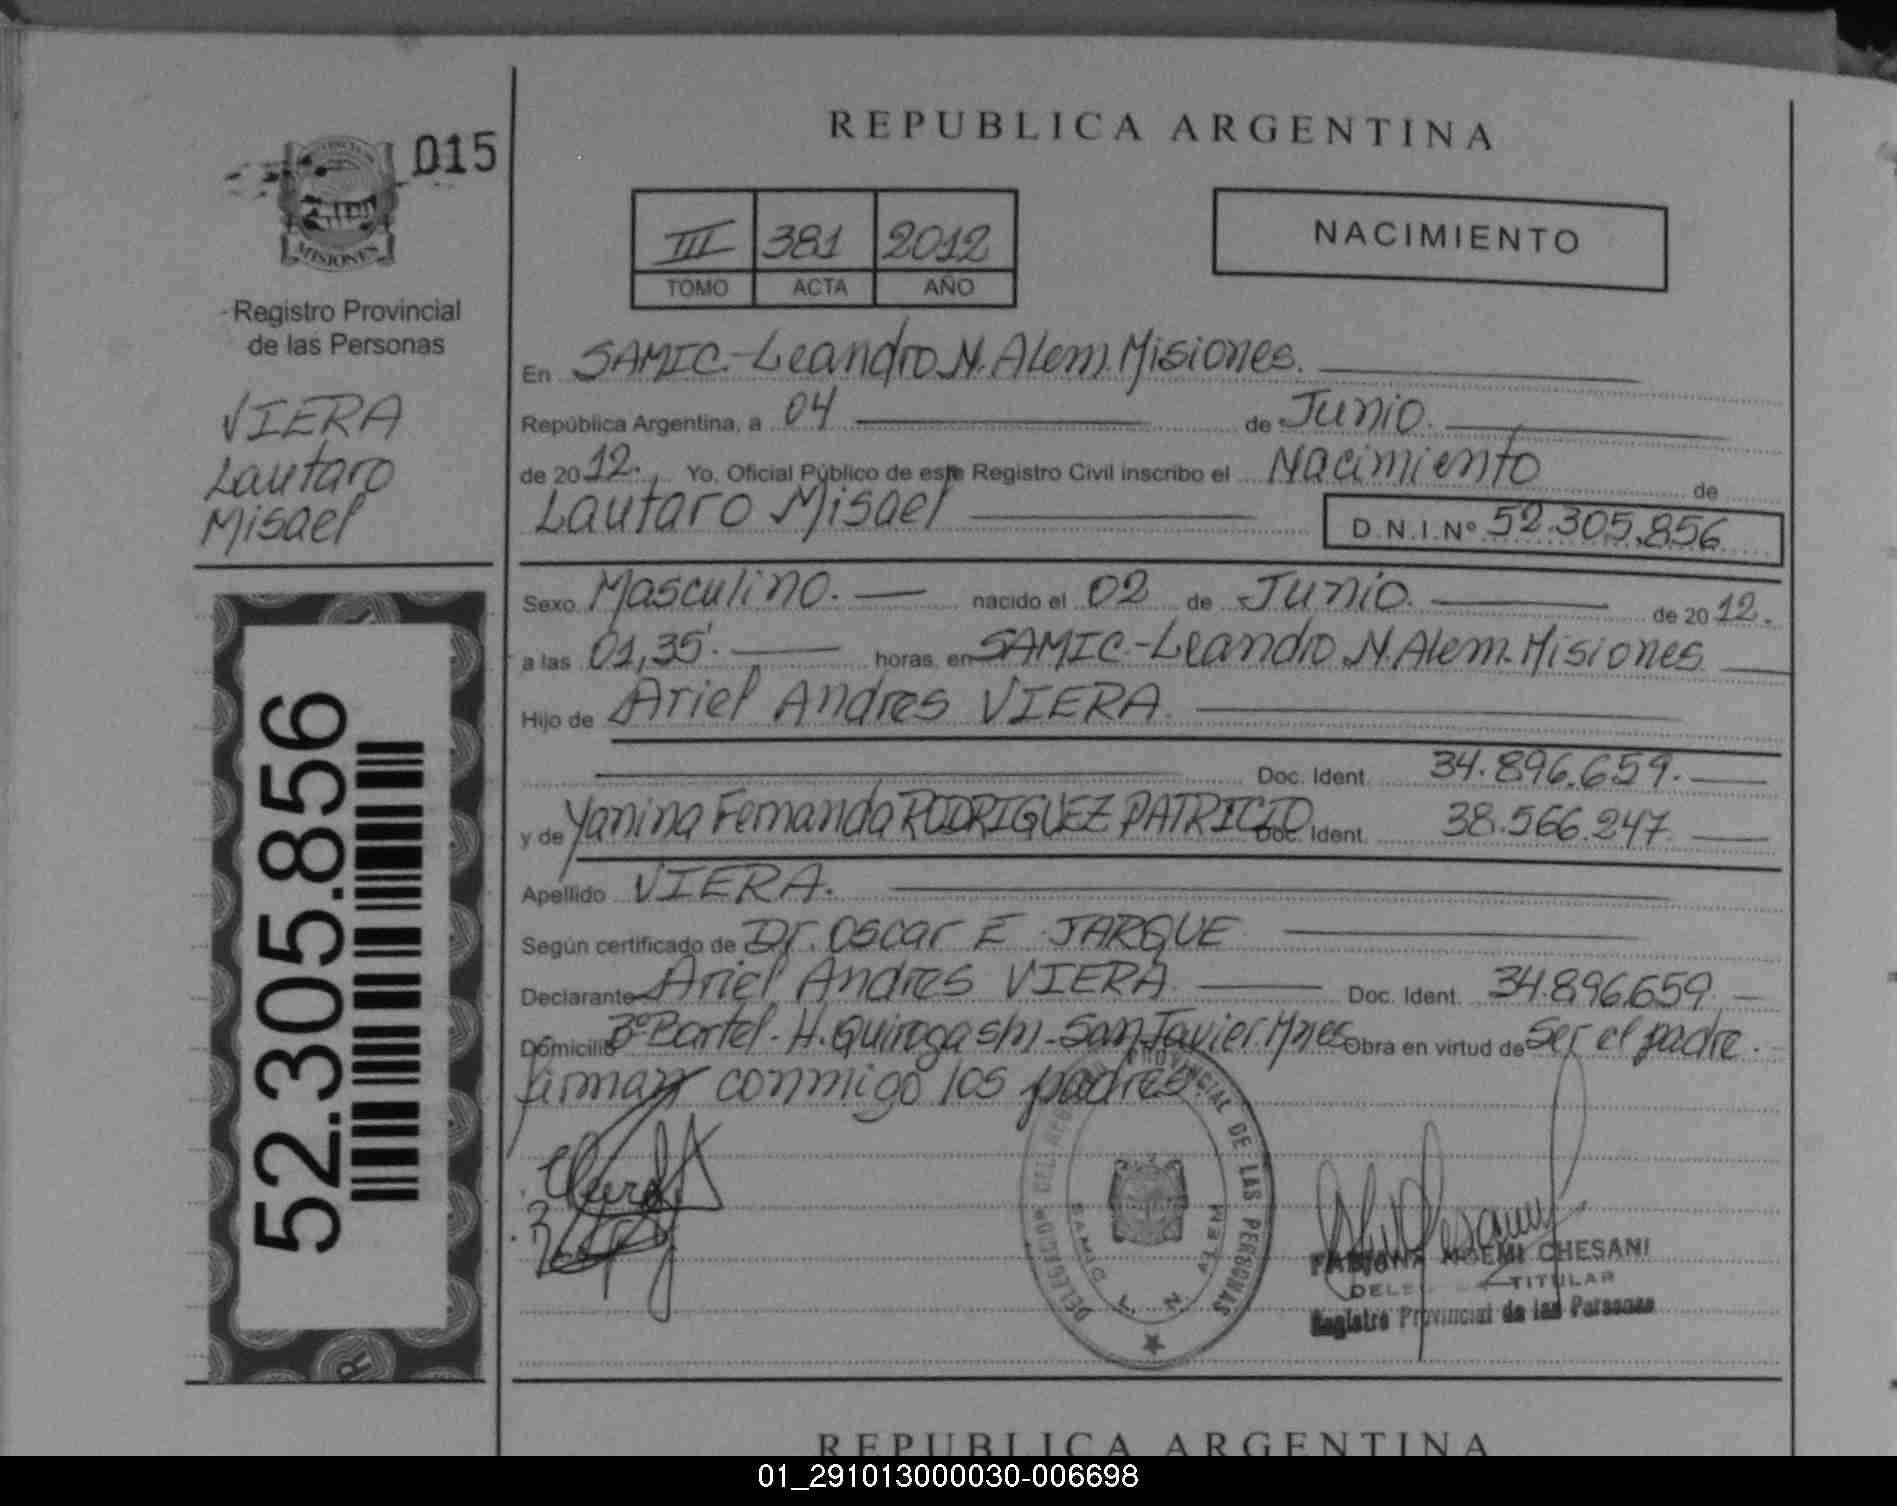 015
MISIONES
Registro Provincial
de las Personas
VIERA
Lautaro
Misael
52.305.856
REPUBLICA ARGENTINA
III 381 2012
TOMO ACTA AÑO
NACIMIENTO
En SAMIC-Leandro N. Alem. Misiones.
República Argentina, a 04 de Junio.
de 2012. Yo, Oficial Público de este Registro Civil inscribo el Nacimiento de
Lautaro Misael D.N.I.Nº 52.305.856
Sexo Masculino. nacido el 02 de Junio. de 2012.
a las 01,35'. horas, en SAMIC-Leandro N. Alem. Misiones
Hijo de Ariel Andres VIERA.
Doc. Ident. 34.896.659.
y de Yanina Fernanda RODRIGUEZ PATRICIO Doc. Ident. 38.566.247
Apellido VIERA.
Según certificado de Dr. Oscar E JARQUE
Declarante Ariel Andres VIERA Doc. Ident. 34.896.659
Domicilio Bº Bartel. H. Quiroga s/n - San Javier Mnes Obra en virtud de Ser el padre.
firman conmigo los padres
DELEGACION DEL REGISTRO PROVINCIAL DE LAS PERSONAS
SAMIC L. N. ALEM
FABIANA NOEMI CHESANI
TITULAR
Registro Provincial de las Personas
REPUBLICA ARGENTINA
01_291013000030-006698